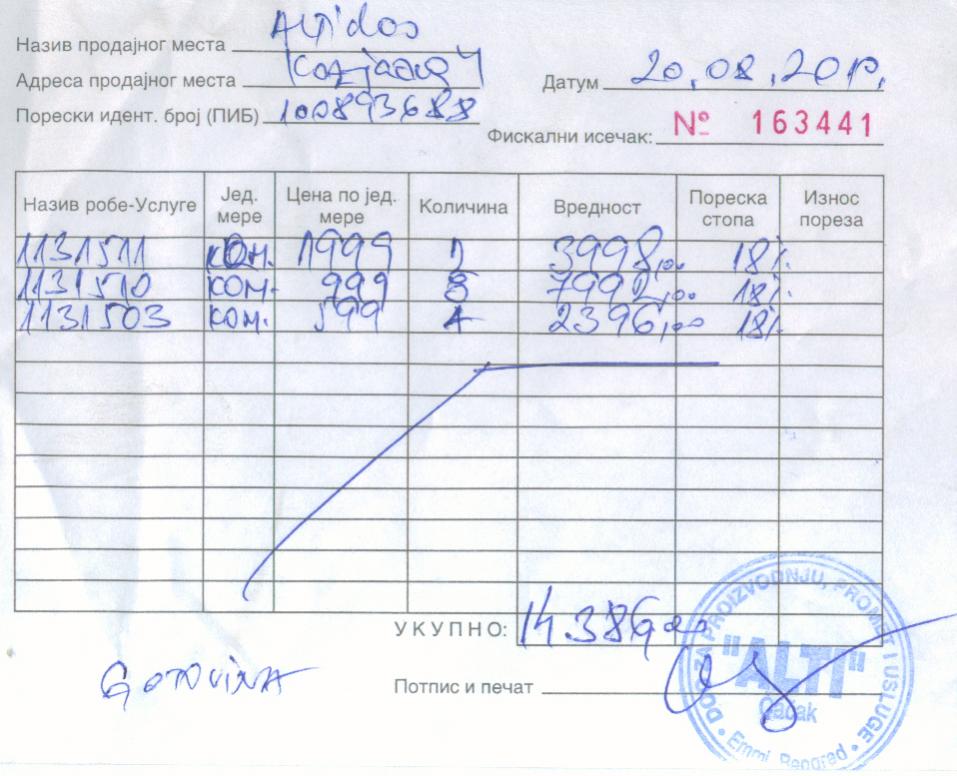 Назив продајног места Altidos
Адреса продајног места
Датум 20.08.2010.
Порески идент. број (ПИБ) 100893688
Фискални исечак: № 163441
Назив робе-Услуге Јед. мере Цена по јед. мере Количина Вредност Пореска стопа Износ пореза
1131511 ком. 1999 2 3998,00 18%
1131510 ком. 999 8 7992,00 18%
1131503 ком. 599 4 2396,00 18%
УКУПНО: 14.386,00
GOTOVINA
Потпис и печат
DOO ZA PROIZVODNJU, PROMET I USLUGE
"ALTI"
Čačak
Emmi, Beograd